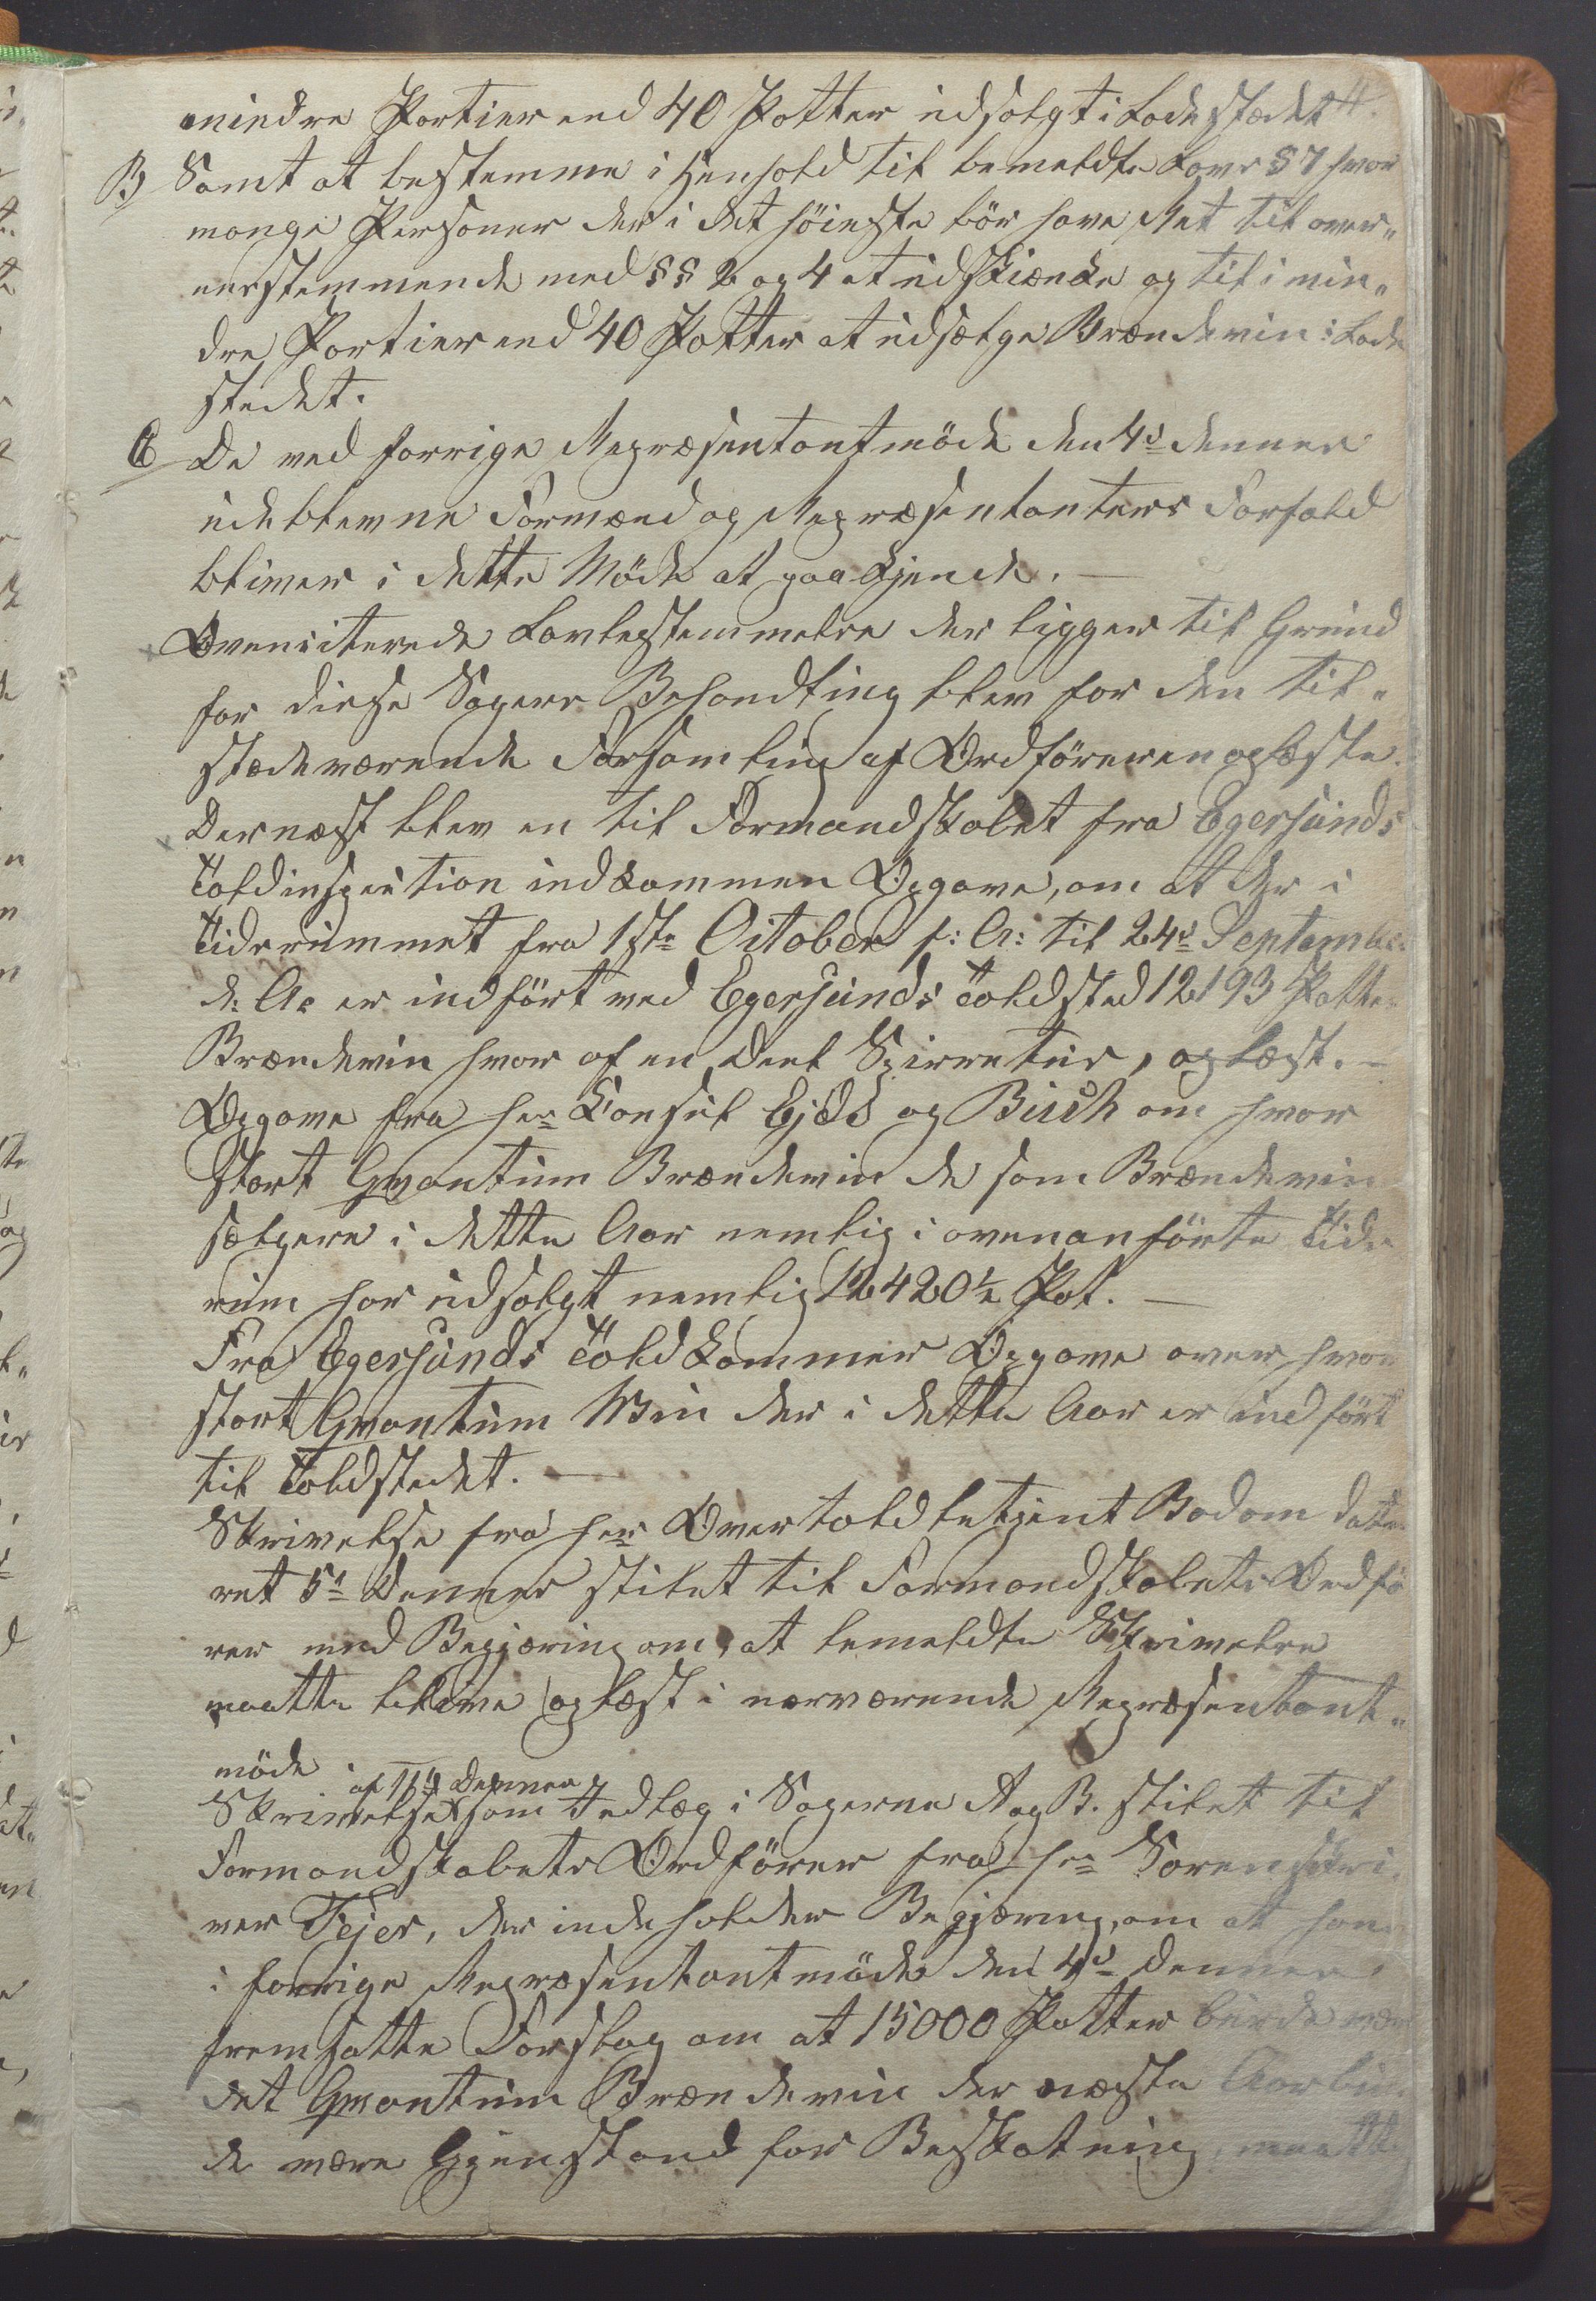 mindre Partier end 40 Potter udsolgt i Ladestædet 4.
B Samt at bestemme i Henhold til bemeldte Lovs § 7 hvor
mange Personer der i det höieste bör have Ret til over„
eenstemmende med §§ 2 og 4 at udskiænke og til i min„
dre Partier end 40 Potter at udsælge Brændeviin i Lade
stedet.
C De ved forrige Repræsentantmöde den 4d dennes
udeblevne Formænd og Repræsentanters Forfald
bliver i dette Möde at paakjende. —
Ovenciterede Lovbestemmelse der ligger til Grund
for disse Sagers Behandling blev for den til„
stædeværende Forsamling af Ordföreren oplæste.
Dernæst blev en til Formandskabet fra Egersunds
Toldinspection indkommen Opgave, om at der i
Tidsrummet fra 1ste October f: A: til 24d September
d: A: er indfört ved Egersunds Toldsted 12193 Potter
Brændeviin hvor af en Deel Spirretus, oplæst. —
Opgave fra Hr Konsul Ejdes og Buch om hvor
stort Qvantum Brændeviin de som Brændeviin
sælgere i dette Aar nemlig i ovenanförte Tids
rum har udsolgt nemlig 12420½ Pot. —
Fra Egersunds Toldkammer Opgave over hvor
stort Qvantum Viin der i dette Aar er indfört
til Toldstedet. —
Skrivelse fra Hr Overtoldbetjent Bodom date
ret 5t Dennes stilet til Formandskabets Ordfö
rer med Begjæring om, at bemeldte Skrivelse
maatte blive oplæst i nærværende Repræsentant„
möde
af 11t Dennes
Skrivelse som Indlæg i Sagerne A og B. stilet til
Formandskabets Ordförer fra Hr Sorenskri
ver Fejer, der indeholder Begjæring, om at hans
i forrige Repræsentantmöde den 4d dennes
fremsatte Forslag om at 15000 Potter burde være
det Qvantum Brændeviin der næste Aar bur
de være Gjenstand for Beskatning, maatte